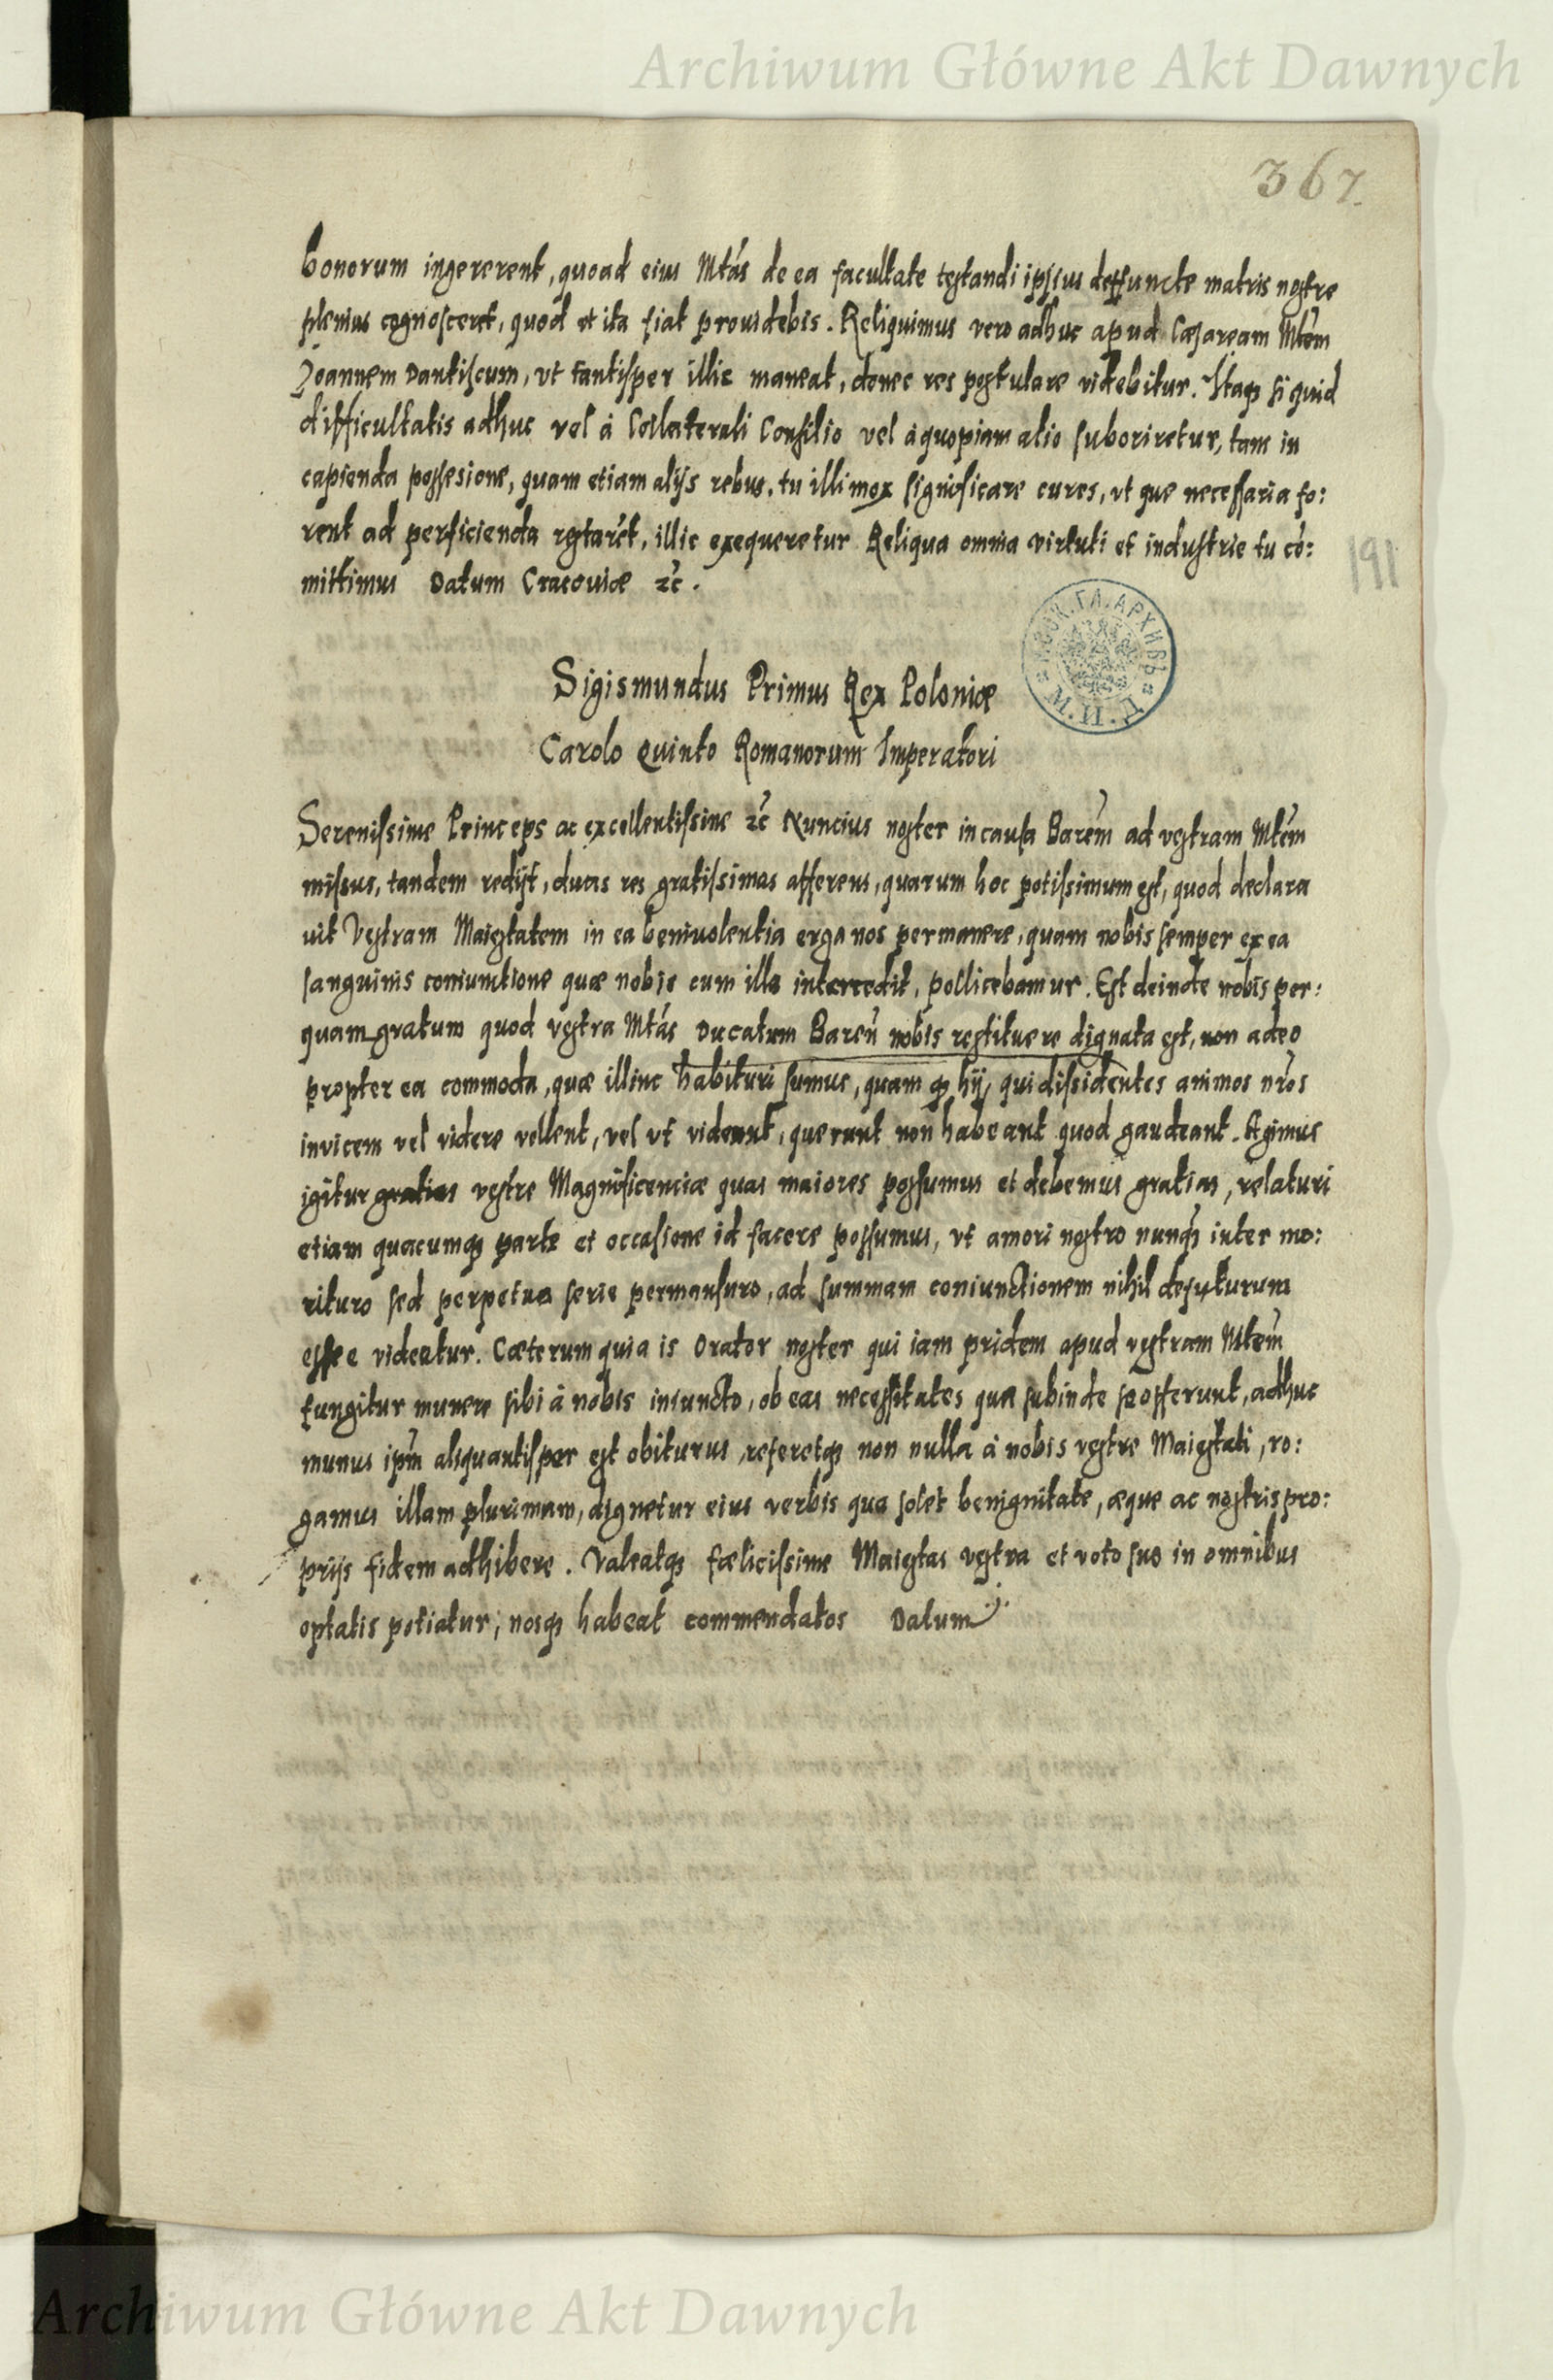 Archiwum Główne Akt Dawnych
367.
bonorum ingererent, quoad eius Mtás de ea facultate testandi ipsius deffuncte matris nostre
plenius cognosceret, quod et ita fiat prouidebis. Reliquimus vero adhuc apud Cæsaream Mtem
Joannem Dantiscum, vt tantisper illic maneat, donec res postulare videbitur. Itaqꝫ si quid
difficultatis adhuc vel à Collaterali Consilio vel à quopiam alio suboriretur, tam in
capienda possesione, quam etiam alijs rebus, tu illi mox significare cures, vt que necessaria fo:
rent ad perficienda restarēt, illic exequeretur Reliqua omnia virtuti et industrie tu cō:
mittimus Datum Cracouiæ ꝛc̄.
191
МОСК. ГЛ. АРХИВЪ * М.И.Д. *
Sigismundus Primus Rex Poloniæ
Carolo Quinto Romanorum Imperatori
Serenissime Princeps ac excellentissime ꝛc̄ Nuncius noster in causa Barēm ad vestram Mtēm
missus, tandem redijt, duas res gratissimas afferens, quarum hoc potissimum est, quod declara
uit Vestram Maiestatem in ea beniuolentia erga nos permanere, quam nobis semper ex ea
sanguinis coniuntione quæ nobis cum illa intercedit, pollicebamur. Est deinde nobis per:
quam gratum quod vestra Mtás Ducatum Bareñ nobis restituere dignata est, non adeo
propter ea commoda, quæ illinc habituri sumus, quam qꝫ hij, qui dissidentes animos nr̄os
invicem vel videre vellent, vel vt videant, querunt non habeant quod gaudeant. Agimus
igitur gratias vestre Magnificenciæ quas maiores possumus et debemus gratias, relaturi
etiam quacumqꝫ parte et occasione id facere possumus, vt amori nostro nunqꝫ inter mo:
rituro sed perpetua serie permansuro, ad summam coniunctionem nihil defuturum
esse videatur. Cæterum quia is Orator noster qui iam pridem apud vestram Mtēm
fungitur munere sibi à nobis iniuncto, ob eas necessitates quæ subinde se offerunt, adhuc
munus ipm̄ aliquantisper est obiturus, referetqꝫ non nulla à nobis vestre Maiestati, ro:
gamus illam plurimum, dignetur eius verbis qua solet benignitate, æque ac nostris pro:
prijs fidem adhibere. Valeatqꝫ fælicissime Maiestas vestra et voto suo in omnibus
optatis potiatur, nosqꝫ habeat commendatos Datum
Archiwum Główne Akt Dawnych